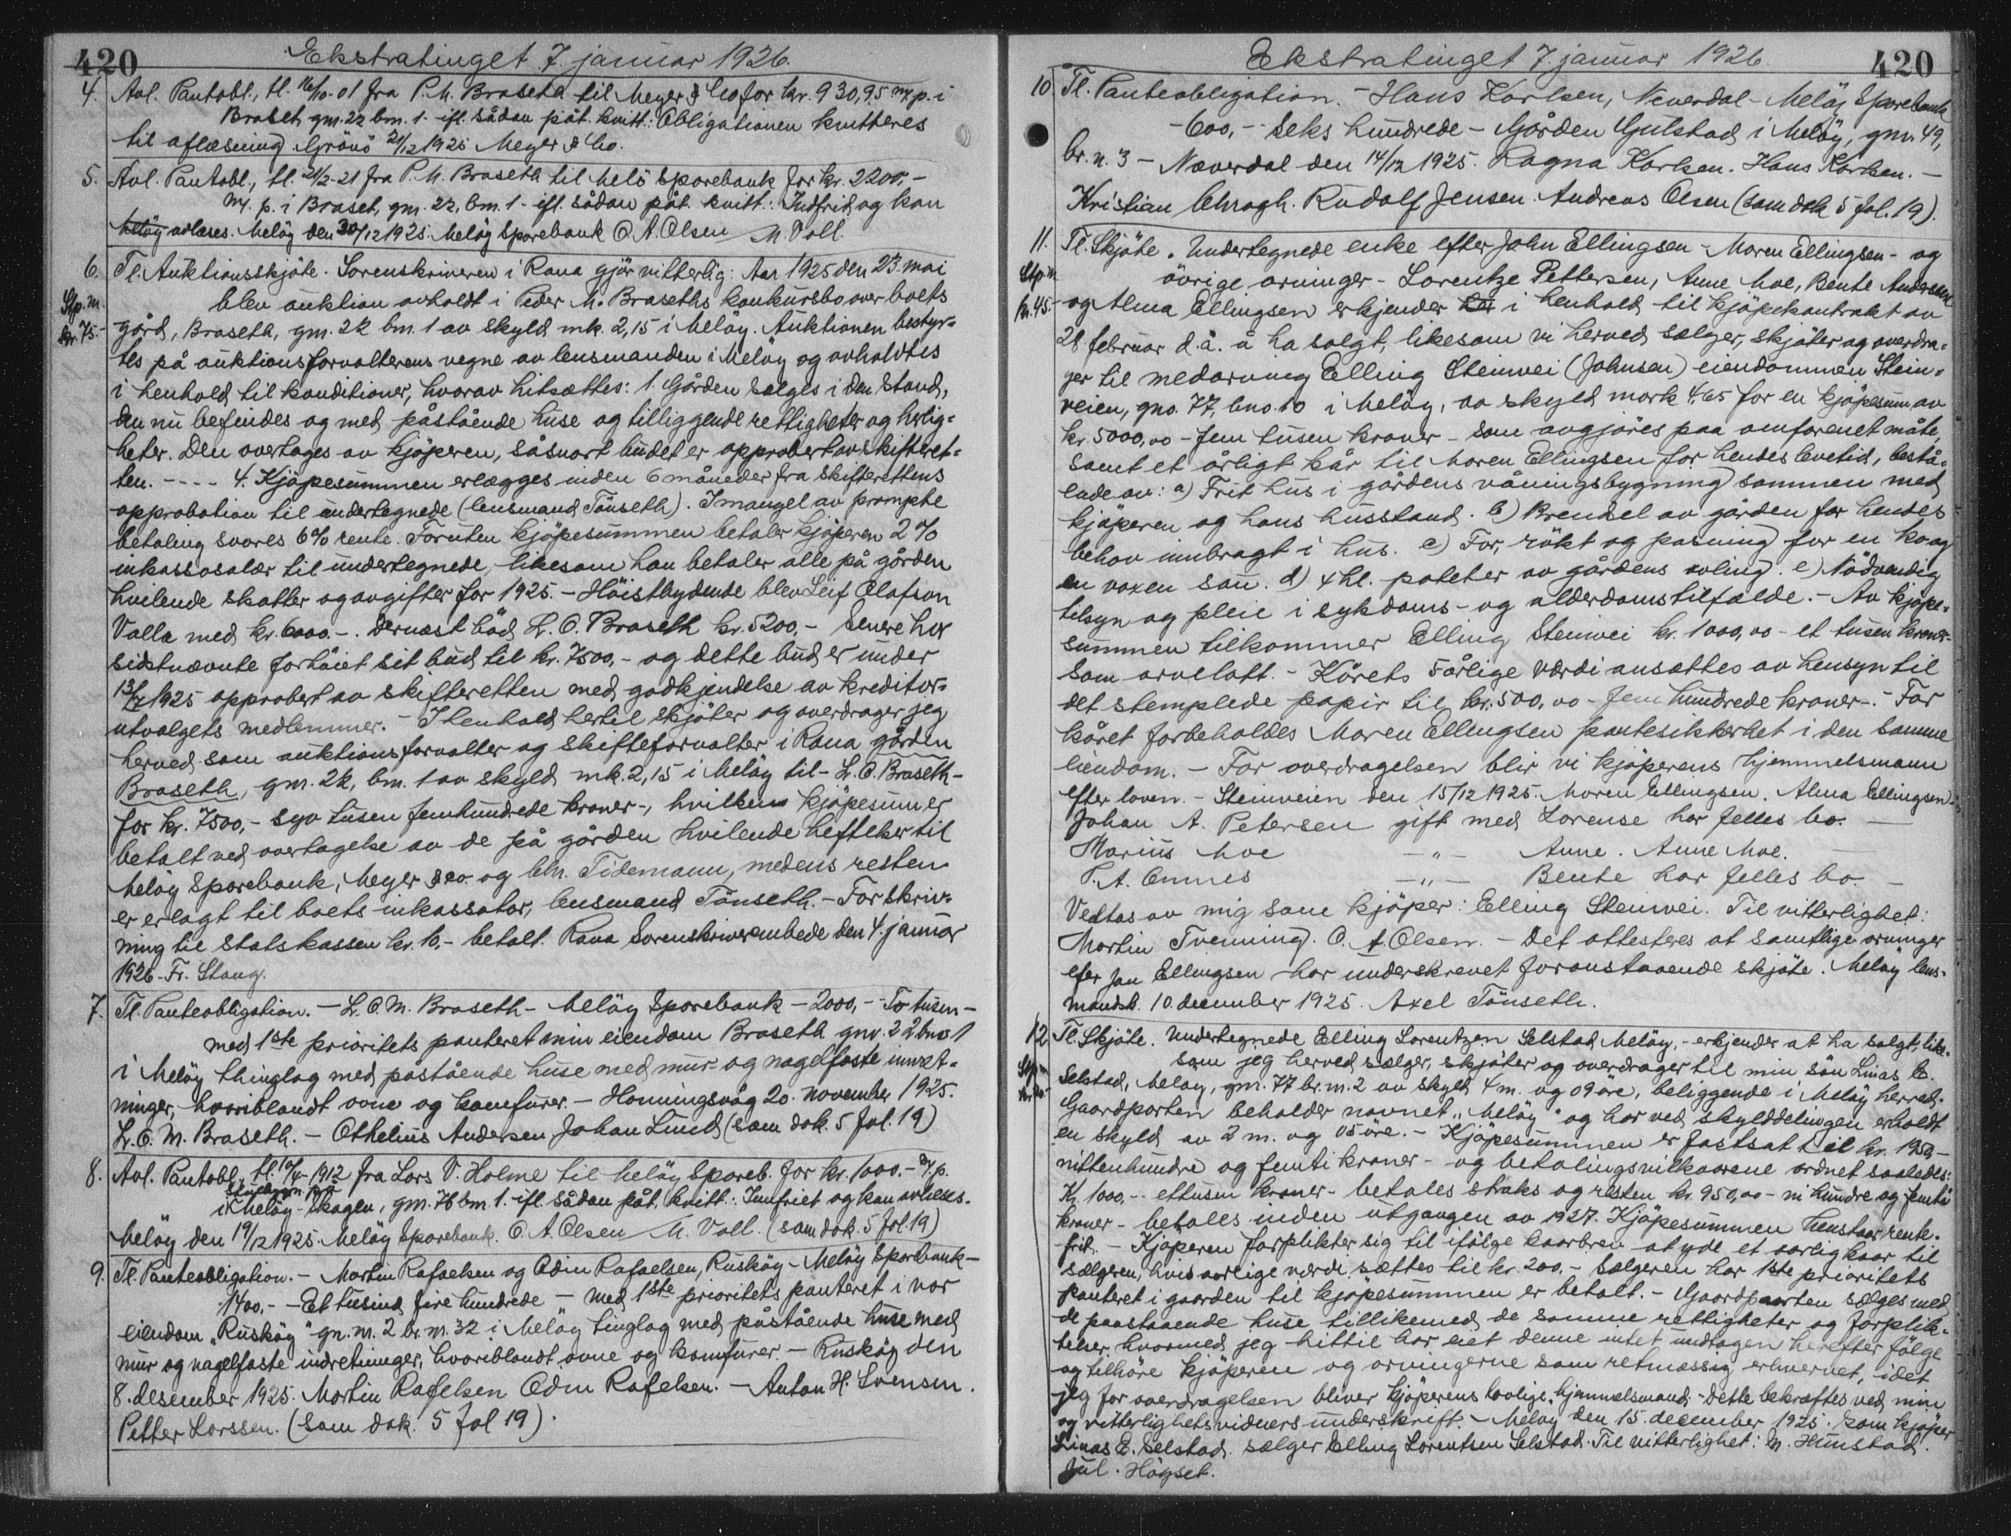 420
Ekstratinget 7. januar 1926.
4. Avl. Pantobl., tl. 16/10-01 fra P. M. Braseth til Meyer & Co for kr. 930,95 m. p. i
Braset, gnr. 22 bnr. 1 - ifl. sådan påt. kvitt: Obligationen kvitteres
til aflæsning Grönö 21/12 1925 Meyer & Co.
5. Avl. Pantobl., tl. 21/2-21 fra P. M. Braseth til Melö Sparebank for kr. 2200,-
m. p. i Braset, gnr. 22, bnr. 1 - ifl. sådan påt. kvitt.: Indfriet og kan
avlæses. Melöy den 30/12 1925. Melöy Sparebank O. A. Olsen M. Voll.
6. Tl. Auktionsskjöte. Sorenskriveren i Rana gjör vitterlig: Aar 1925 den 23. mai
Stp. m. blev auktion avholdt i Peder M. Braseths konkursbo over boets
kr. 75.- gård, Braseth, gnr. 22 bnr. 1 av skyld mk. 2,15 i Melöy. Auktionen bestyr-
tes på auktionsforvalterens vegne av lensmanden i Melöy og avholdtes
i henhold til konditioner, hvorav hitsættes: 1. Gården sælges i den stand,
den nu befindes og med påstående huse og tilliggende rettigheter og herlig-
heter. Den overtages av kjöperen, såsnart budet er approbert av skifteret-
ten. - - - - 4. Kjöpesummen erlægges inden 6 måneder fra skifterettens
approbation til undertegnede (lensmand Tönseth). I mangel av prompte
betaling svares 6% rente. Foruten kjöpesummen betaler kjöperen 2%
inkassosalær til undertegnede, likesom han betaler alle på gården
hvilende skatter og avgifter for 1925. - Höistbydende blev Leif Olafson
Valla med kr. 6000.-. Dernæst böd L. O. Braseth kr. 5200.- Senere har
sidstnævnte forhöiet sit bud til kr. 7500,- og dette bud er under
1925 approbert av skifteretten med godkjendelse av kreditor-
utvalgets medlemmer. - I henhold hertil skjöter og overdrager jeg
herved som auktionsforvalter og skifteforvalter i Rana gården
Braseth, gnr. 22, bnr. 1 av skyld mk. 2,15 i Melöy til - L. O. Braseth -
for kr. 7500,- syv tusen femhundrede kroner -, hvilken kjöpesum er
betalt ved overtagelse av de på gården hvilende heftelser til
Melöy Sparebank, Meyer & co. og Chr. Tidemann, medens resten
er erlagt til boets inkassator, lensmand Tönseth. - For skriv-
ning til statskassen kr. 10.- betalt. Rana Sorenskriverembede den 4. januar
1926. Fr. Stang.
7. Tl. Panteobligation. - L. O. M. Braseth - Melöy Sparebank - 2000,- - To tusen -
med 1ste prioritets panteret i min eiendom Braseth gnr. 22 bno 1
i Melöy thinglag med påstående huse med mur og nagelfaste innret-
ninger, hvoriblandt ovne og komfurer. - Honningsvåg 20. november 1925.
L. O. M. Braseth. - Othelius Andersen Johan Lund (som dok. 5 fol. 19)
8. Avl. Pantobl. tl. 1912 fra Lars V. Holme til Melöy Spareb. for kr. 1000.- m. p.
i Melöy - Skagen, gnr. 76 bnr. 1. - ifl. sådan påt. kvitt.: Innfriet og kan avlæses.
Melöy den 19/12 1925. Melöy Sparebank. O. A. Olsen M. Voll. (som dok. 5 fol. 19)
9. Tl. Panteobligation. - Martin Rafaelsen og Odin Rafaelsen, Rusköy - Melöy Sparebank -
1400.- - Et tusind fire hundrede - med 1ste prioritets panteret i vor
eiendom „Rusköy" gn. nr. 2 br. nr. 32 i Melöy tinglag med påstående huse med
mur og nagelfaste indretninger, hvoriblandt ovne og komfurer. - Rusköy den
8. desember 1925. Martin Rafelsen Odin Rafelsen. - Anton H. Svensen.
Petter Larssen. (som dok. 5 fol 19).
Ekstratinget 7. januar 1926.
420
10 Tl. Panteobligation. - Hans Karlsen, Neverdal - Melöy Sparebank
- 600,- - seks hundrede - Gården Gulstad i Melöy, gnr. 49,
br. n. 3 - Næverdal den 14/12 1925. Ragna Karlsen. Hans Karlsen. -
Kristian Chragh. Rudolf Jensen. Andreas Olsen (som dok 5 fol. 19).
11. Tl. Skjöte. Undertegnede enke efter John Ellingsen - Maren Ellingsen - og
Stp. m. övrige arvinger - Lorentze Pettersen, Anne Moe, Bente Anderssen
kr. 45.- og Alma Ellingsen erkjender i henhold til kjöpekontrakt av
28 februar d. å. å ha solgt, likesom vi herved sælger, skjöter og overdra-
ger til medarving Elling Steinvei (Johnsen) eiendommen Stein-
veien, gno. 77, bno. 10 i Melöy, av skyld mark 4,65 for en kjöpesum av
kr. 5000,00 - fem tusen kroner - som avgjöres paa omforenet måte,
samt et årligt kår til Maren Ellingsen for hendes levetid, bestå-
ende av: a) Frit hus i gårdens våningsbygning sammen med
kjöperen og hans husstand. b) Brensel av gården for hendes
behov innbragt i hus. c) For, rökt og pasning for en ko og
en voxen sau. d) 4 hl. poteter av gårdens avling. e) Nödvendig
tilsyn og pleie i sykdoms- og alderdomstilfælde. - Av kjöpe-
summen tilkommer Elling Steinvei kr. 1000,00 - et tusen kroner -
som arvelott. - Kårets 5 årlige værdi ansættes av hensyn til
det stemplede papir til kr. 500,00 - fem hundrede kroner -. - For
kåret forbeholdes Maren Ellingsen pantesikkerhet i den samme
eiendom. - For overdragelsen blir vi kjöperens hjemmelsmann
efter loven. - Steinveien den 15/12 1925. Maren Ellingsen. Alma Ellingsen.
Johan A. Petersen gift med Lorense har felles bo. -
Marius Moe -"- Anne. Anne Moe. -
P. A. Onnes -"- Bente har felles bo. -
Vedtas av mig som kjöper: Elling Steinvei. Til vitterlighet:
Martin Tvenning. O. A. Olsen. - Det attesteres at samtlige arvinger
efter Jon Ellingsen har underskrevet foranstaaende skjöte. Melöy lens-
mandsk. 10. december 1925. Axel Tönseth.
12 Tl. Skjöte. Undertegnede Elling Lorentzen Selstad, Melöy, - erkjender at ha solgt, like-
Stp. m. som jeg herved sælger, skjöter og overdrager til min sön Linas E.
Selstad, Melöy, gnr. 77 br. nr. 2 av skyld 4 m. og 09 öre, beliggende i Melöy herred.
Gaardparten beholder navnet „Melöy" og har ved skylddelingen erholdt
en skyld av 2 m. og 05 öre. - Kjöpesummen er fastsat til kr. 1950,-
nittenhundre og femti kroner - og betalingsvilkaarene ordnet saaledes:
Kr. 1000,- - ettusen kroner - betales straks og resten kr. 950,00 - ni hundre og femti
kroner - betales inden utgangen av 1927. Kjöpesummen henstaar rente-
frit. - Kjöperen forplikter sig til ifölge kaarbrev at yde et aarlig kaar til
sælgeren, hvis aarlige værdi sættes til kr. 200,- Sælgeren har 1ste prioritets
panteret i gaarden til kjöpesummen er betalt. - Gaardparten sælges med
de paastaaende huse tillikemed de samme rettigheter og forplik-
telser, hvormed jeg hittil har eiet denne intet undtagen herefter fölge
og tilhöre kjöperen og arvingerne som retmæssig erhvervet, idet
jeg for overdragelsen bliver kjöperens lovlige hjemmelsmand. - Dette bekræftes ved min
og vitterlighetsvidners underskrift. - Melöy den 15. december 1925. Som kjöper
Linas E. Selstad. sælger Elling Lorentsen Selstad. Til vitterlighet: M. Hunstad.
Jul. Högset.